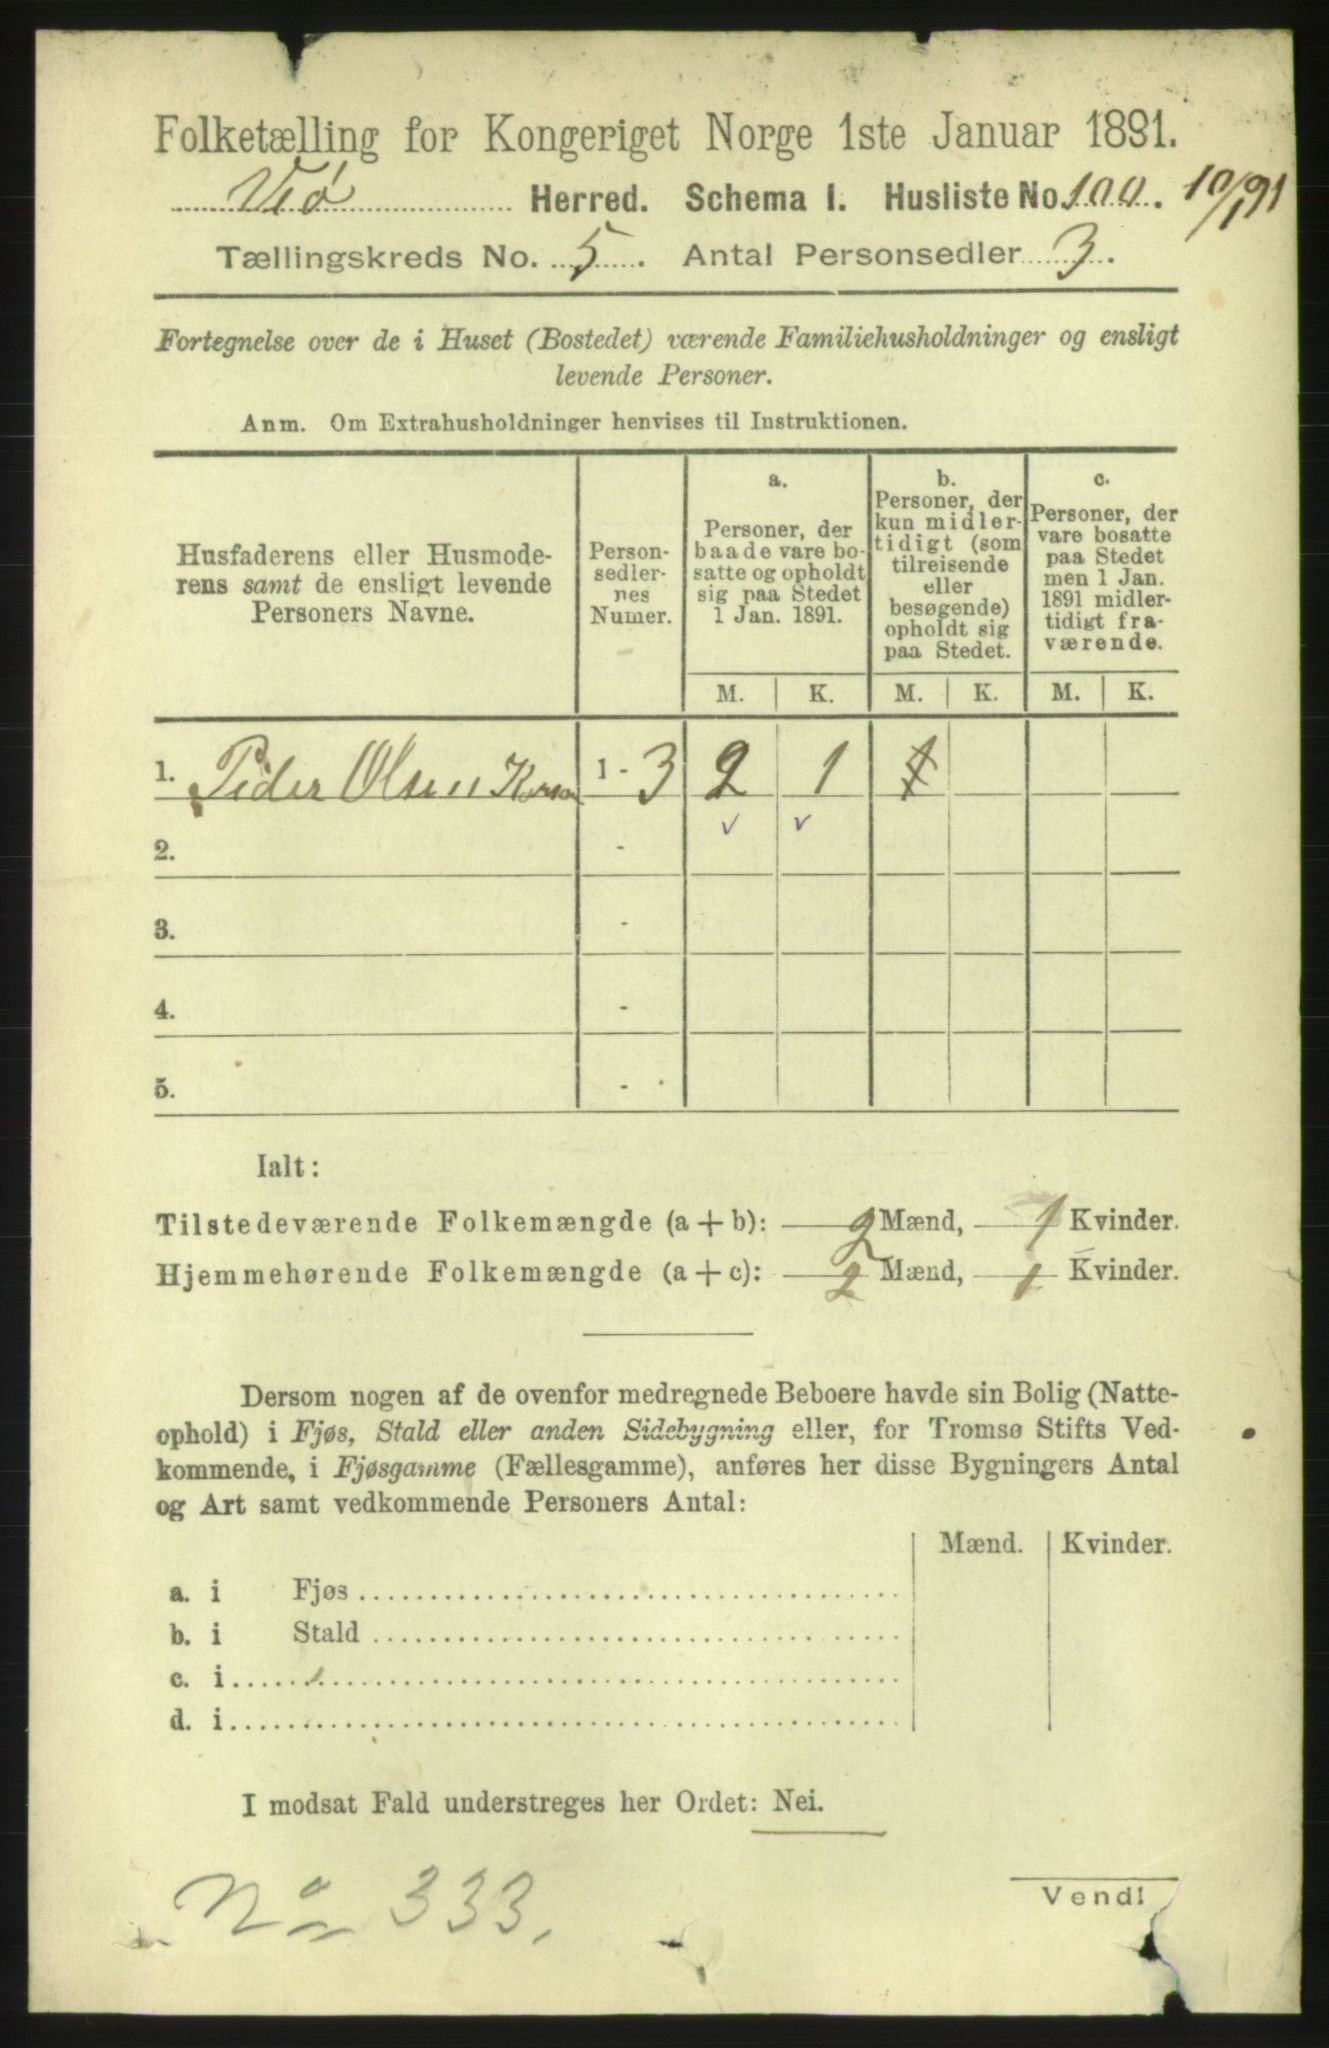 Folketælling for Kongeriget Norge 1ste Januar 1891.
Veø Herred. Schema I. Husliste No. 100. 10/1 91
Tællingskreds No. 5. Antal Personsedler 3.
Fortegnelse over de i Huset (Bostedet) værende Familiehusholdninger og ensligt
levende Personer.
Anm. Om Extrahusholdninger henvises til Instruktionen.
Husfaderens eller Husmode-
rens samt de ensligt levende
Personers Navne.
Person-
sedler-
nes
Numer.
a.
Personer, der
baade vare bo-
satte og opholdt
sig paa Stedet
1 Jan. 1891.
b.
Personer, der
kun midler-
tidigt (som
tilreisende
eller
besøgende)
opholdt sig
paa Stedet.
c.
Personer, der
vare bosatte
paa Stedet
men 1 Jan.
1891 midler-
tidigt fra-
værende.
M. K. M. K. M. K.
1. Peder Olsen 1 - 3 2 1 1
2. -
3. -
4. -
5. -
Ialt:
Tilstedeværende Folkemængde (a + b): 2 Mænd, 1 Kvinder.
Hjemmehørende Folkemængde (a + c): 2 Mænd, 1 Kvinder.
Dersom nogen af de ovenfor medregnede Beboere havde sin Bolig (Natte-
ophold) i Fjøs, Stald eller anden Sidebygning eller, for Tromsø Stifts Ved-
kommende, i Fjøsgamme (Fællesgamme), anføres her disse Bygningers Antal
og Art samt vedkommende Personers Antal:
Mænd. Kvinder.
a. i Fjøs
b. i Stald
c. i
d. i
I modsat Fald understreges her Ordet: Nei.
No 333.
Vend!